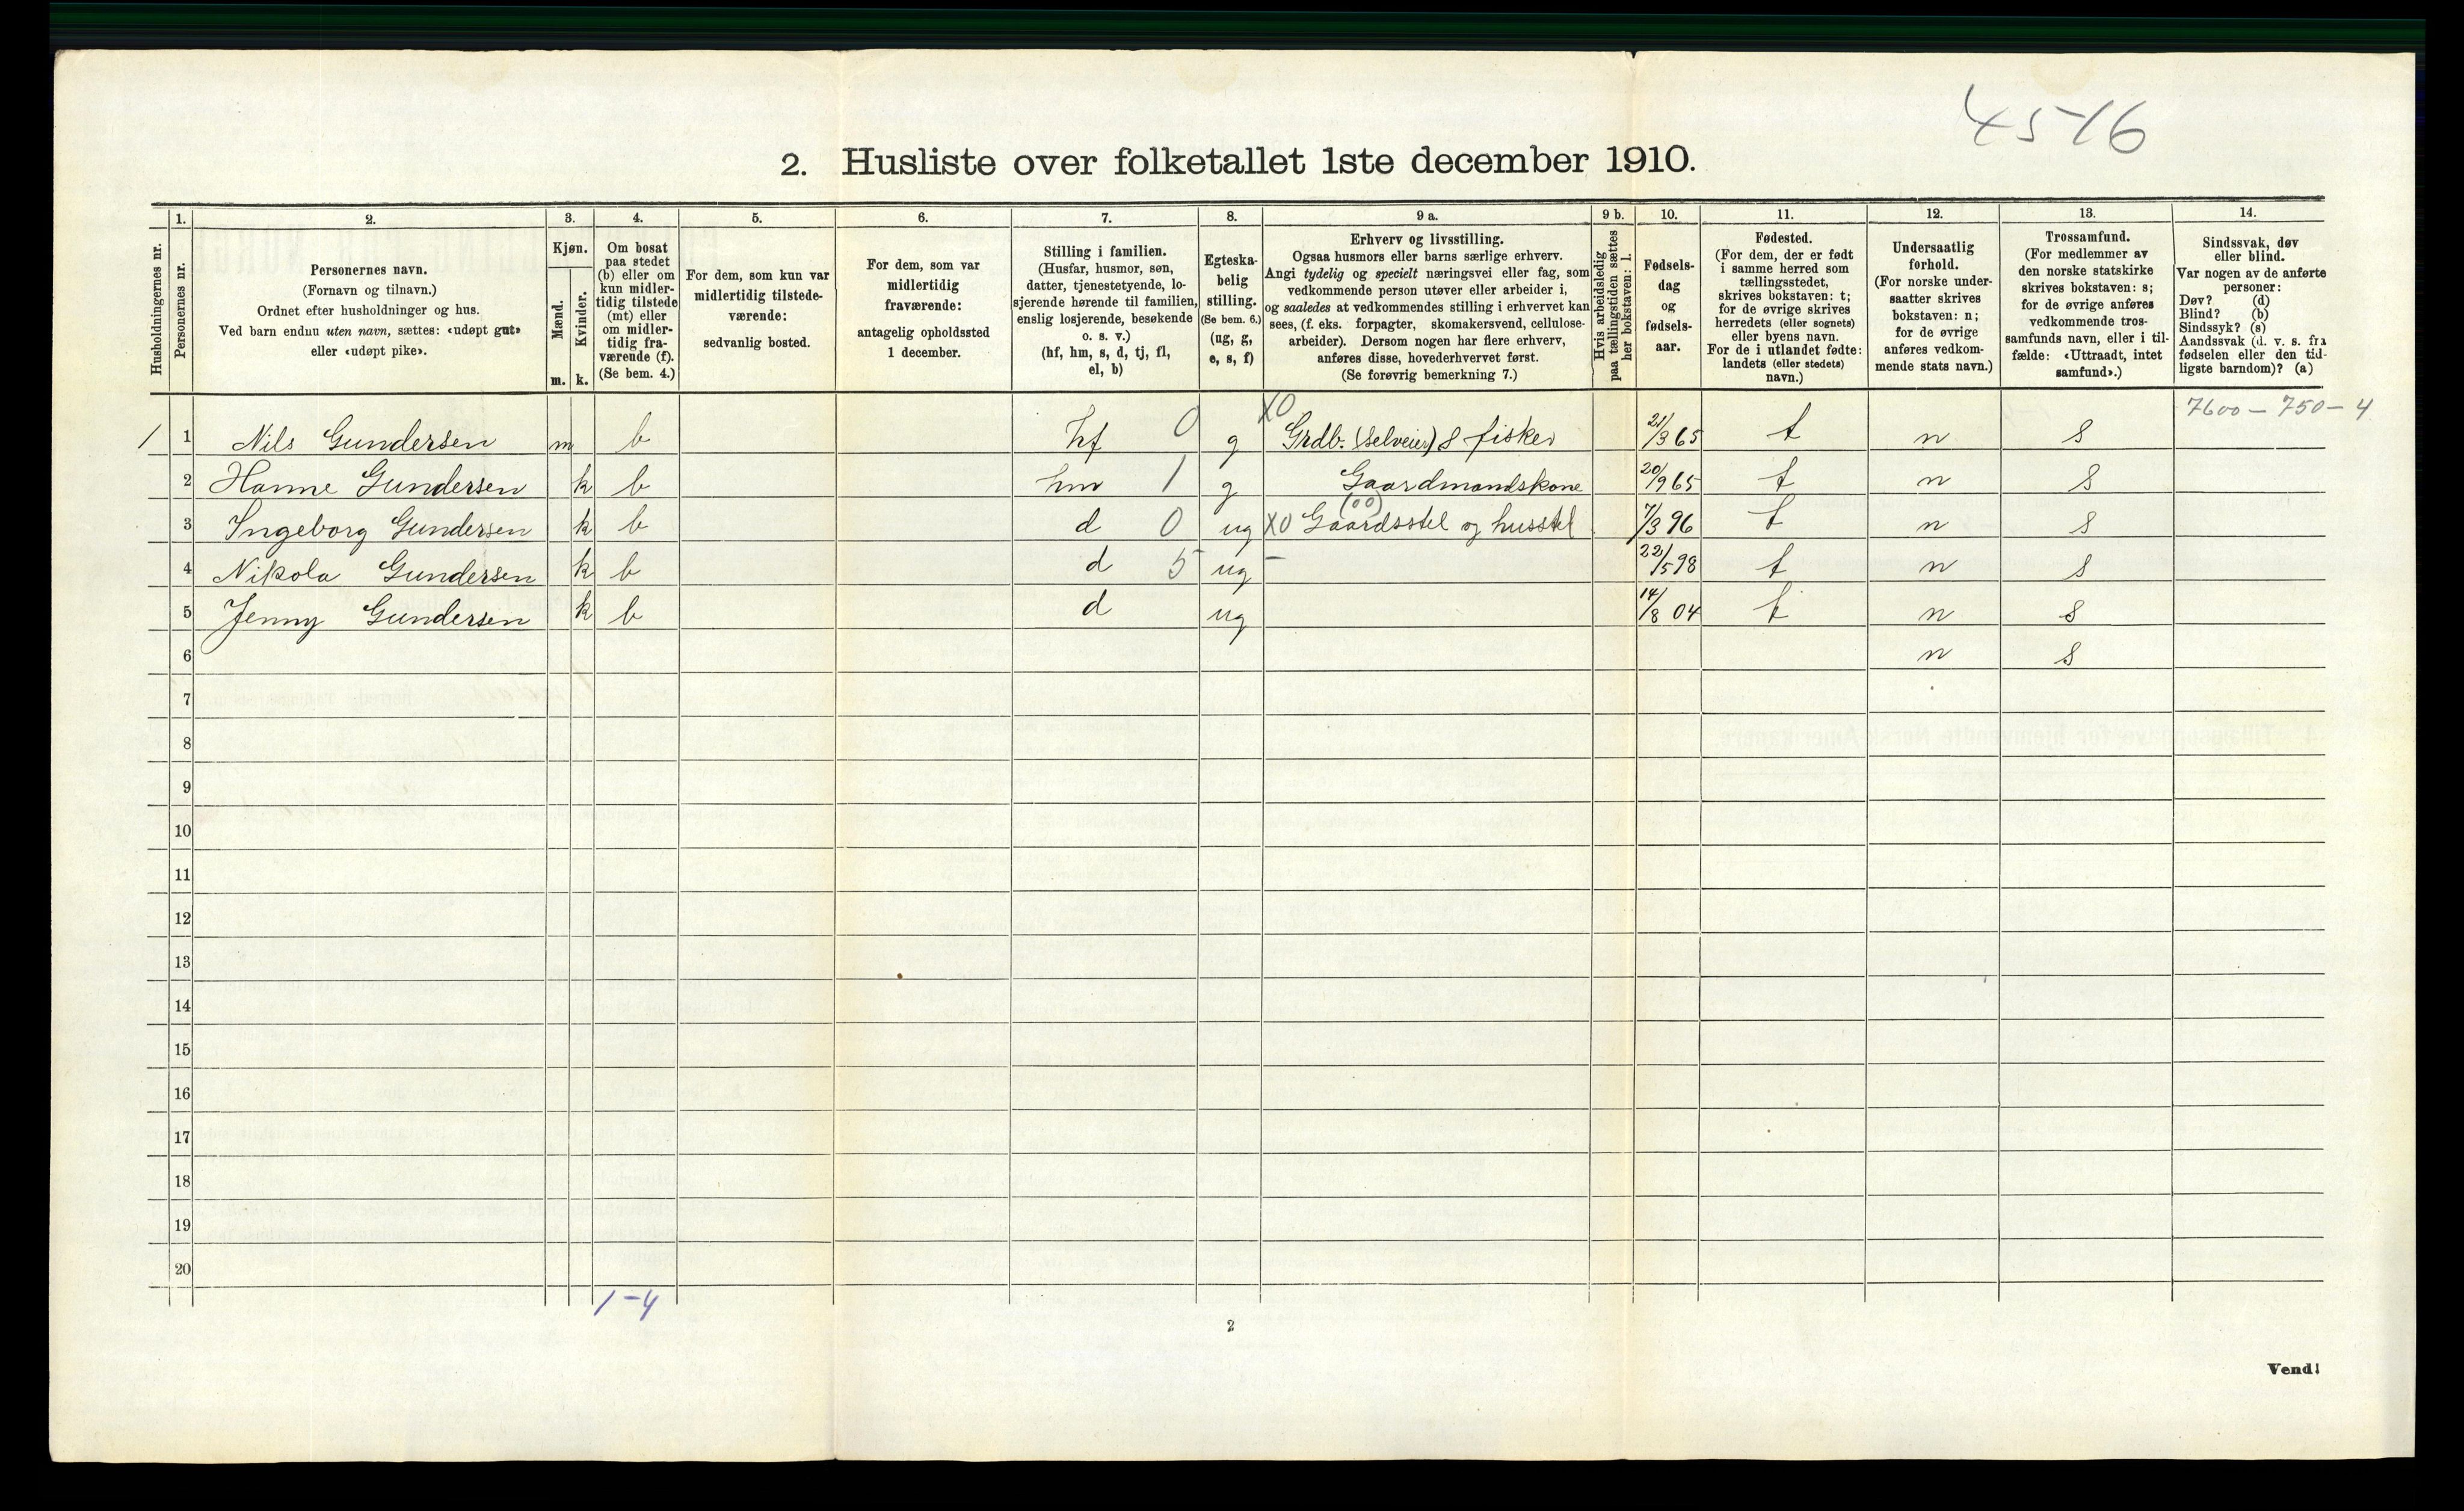 45-16
2. Husliste over folketallet 1ste december 1910.
Husholdningernes nr.
1.
Personernes nr.
2.
Personernes navn.
(Fornavn og tilnavn.)
Ordnet efter husholdninger og hus.
Ved barn endnu uten navn, sættes: «udøpt gut»
eller «udøpt pike».
3.
Kjøn.
Mænd.
Kvinder.
m. k.
4.
Om bosat
paa stedet
(b) eller om
kun midler-
tidig tilstede
(mt) eller
om midler-
tidig fra-
værende (f).
(Se bem. 4.)
5.
For dem, som kun var
midlertidig tilstede-
værende:
sedvanlig bosted.
6.
For dem, som var
midlertidig
fraværende:
antagelig opholdssted
1 december.
7.
Stilling i familien.
(Husfar, husmor, søn,
datter, tjenestetyende, lo-
sjerende hørende til familien,
enslig losjerende, besøkende
o. s. v.)
(hf, hm, s, d, tj, fl,
el, b)
8.
Egteska-
belig
stilling.
(Se bem. 6.)
(ug, g,
e, s, f)
9 a.
Erhverv og livsstilling.
Ogsaa husmors eller barns særlige erhverv.
Angi tydelig og specielt næringsvei eller fag, som
vedkommende person utøver eller arbeider i,
og saaledes at vedkommendes stilling i erhvervet kan
sees, (f. eks. forpagter, skomakersvend, cellulose-
arbeider). Dersom nogen har flere erhverv,
anføres disse, hovederhvervet først.
(Se forøvrig bemerkning 7.)
9 b.
Hvis arbeidsledig
paa tællingstiden sættes
her bokstaven: l.
10.
Fødsels-
dag
og
fødsels-
aar.
11.
Fødested.
(For dem, der er født
i samme herred som
tællingsstedet,
skrives bokstaven: t;
for de øvrige skrives
herredets (eller sognets)
eller byens navn.
For de i utlandet fødte:
landets (eller stedets)
navn.)
12.
Undersaatlig
forhold.
(For norske under-
saatter skrives
bokstaven: n;
for de øvrige
anføres vedkom-
mende stats navn.)
13.
Trossamfund.
(For medlemmer av
den norske statskirke
skrives bokstaven: s;
for de øvrige anføres
vedkommende tros-
samfunds navn, eller i til-
fælde: «Uttraadt, intet
samfund».)
14.
Sindssvak, døv
eller blind.
Var nogen av de anførte
personer:
Døv? (d)
Blind? (b)
Sindssyk? (s)
Aandssvak (d. v. s. fra
fødselen eller den tid-
ligste barndom)? (a)
X0 7600 - 750 - 4
1 1 Nils Gundersen m b hf 0 g Grdb. (selveier) & fisker 21/3 65 t n s
2 Hanne Gundersen k b hm 1 g Gaardmandskone 20/9 65 t n s
(00)
3 Ingeborg Gundersen k b d 0 ug X0 Gaardsstel og husstel 7/3 96 t n s
4 Nikola Gundersen k b d 5 ug - 22/5 98 t n s
5 Jenny Gundersen k b d ug 14/8 04 t n s
6 n s
7
8
9
10
11
12
13
14
15
16
17
18
19
20
1-4
2
Vend!